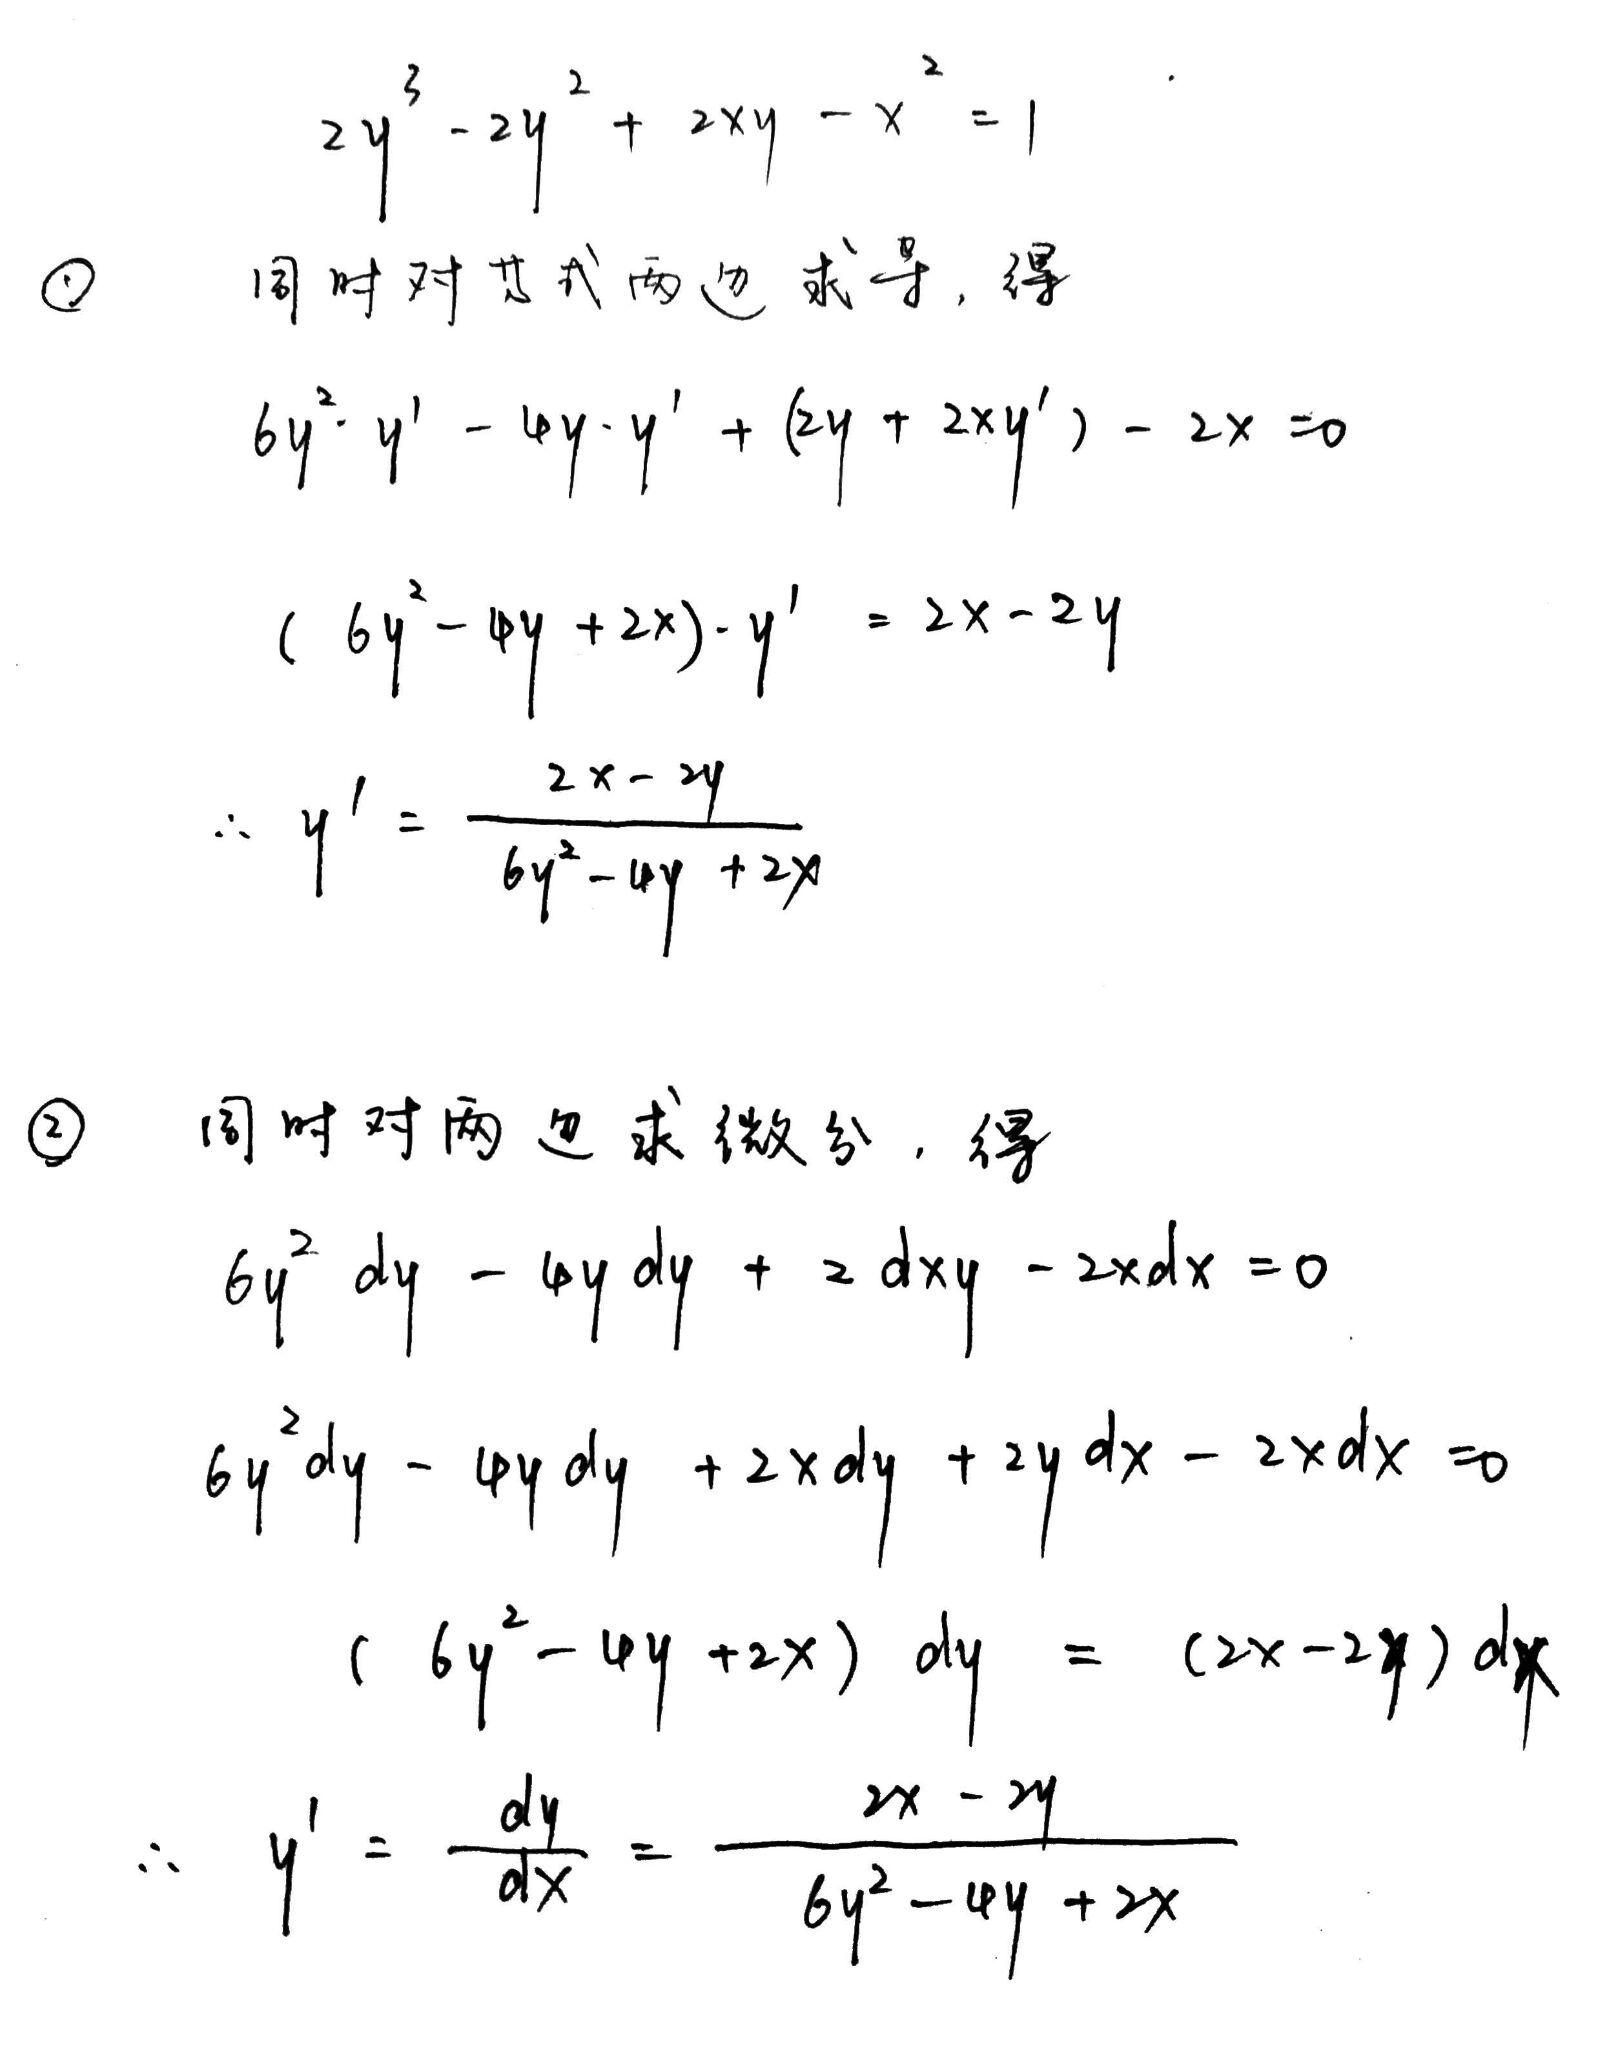 2y³ - 2y² + 2xy - x² = 1
① 同时对其式两边求导，得
6y²·y' - 4y·y' + (2y + 2xy') - 2x = 0
(6y² - 4y + 2x)·y' = 2x - 2y
∴ y' = (2x - 2y) / (6y² - 4y + 2x)
② 同时对两边求微分，得
6y² dy - 4y dy + 2 dxy - 2x dx = 0
6y² dy - 4y dy + 2x dy + 2y dx - 2x dx = 0
(6y² - 4y + 2x) dy = (2x - 2y) dx
∴ y' = dy/dx = (2x - 2y) / (6y² - 4y + 2x)